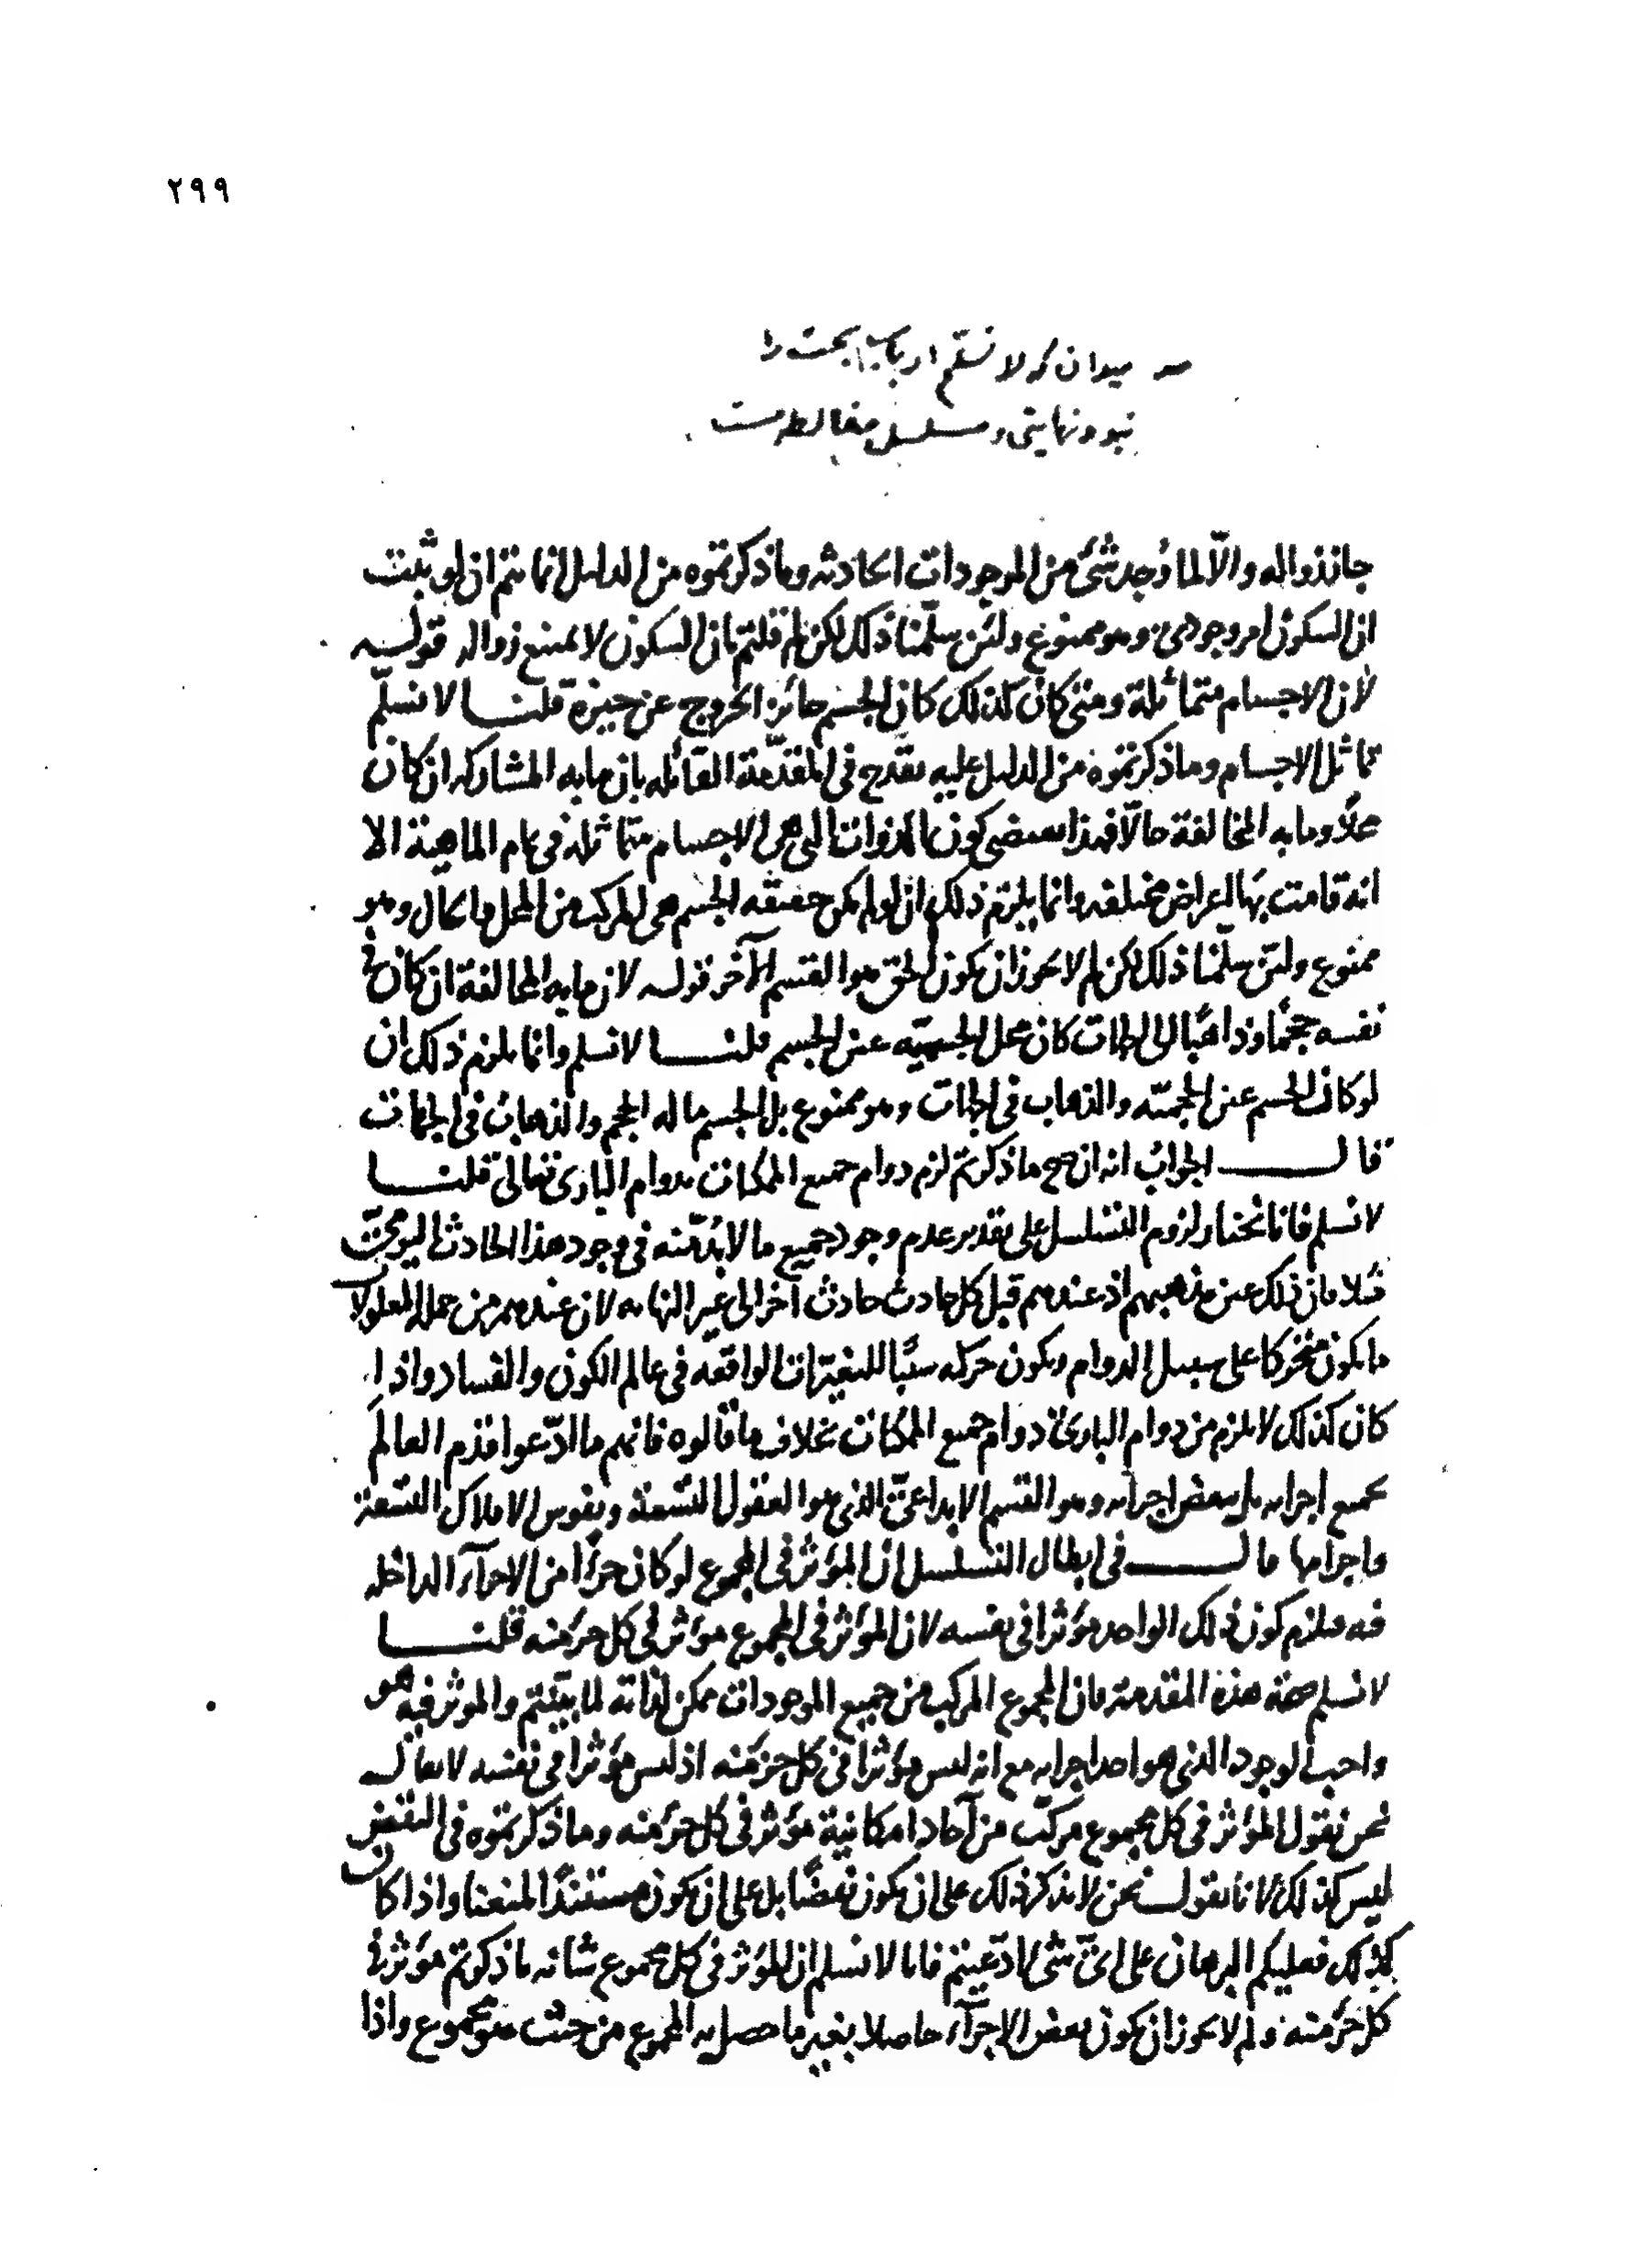 ٢٩٩
ميدان كه لا نسلم ارباب بحث را
نبود نهايتى و مسلسل مغالطه ست
جاز زواله والّا لما وُجد شئ من الموجودات الحادثه وما ذكرتموه من الدليل انما يتم ان لو ثبت
ان السكون امر وجودى وهو ممنوع ولئن سلّمنا ذلك لكن لم قلتم بان السكون لا يمتنع زواله قولـــه
لان الاجسام متماثلة ومتى كان كذلك كان الجسم جائز الخروج عن حيزه قلنـــا لا نسلّم
تماثل الاجسام وما ذكرتموه من الدليل عليه يقدح فى المقدّمة القائله بان ما به المشاركه ان كان
محلّا وما به المخالفة حالّا فهذا يقتضى كون الذوات التى هى الاجسام متماثله فى تمام الماهية الا
انه قامت بها اعراض مختلفه وانما يلزم ذلك ان لو لم يكن حقيقه الجسم هى المركب من المحل والحال وهو
ممنوع ولئن سلّمنا ذلك لكن لم لا يجوز ان يكون الحق هو القسم الآخر قوله لان ما به المخالفة ان كان فى
نفسه حجمًا وذاهبًا الى الجهات كان محل الجسميّه عين الجسم قلنـــا لا نسلم وانما يلزم ذلك ان
لو كان الجسم عين الحجميّه والذهاب فى الجهات وهو ممنوع بل الجسم ما له الحجم والذهاب فى الجهات
قالـــ الجواب انه ان صح ما ذكرتم لزم دوام جميع الممكنات بدوام البارى تعالى قلنـــا
لا نسلم فانا نختار لزوم التسلسل على تقدير عدم وجود جميع ما لا بُدّ منه فى وجود هذا الحادث اليومىّ
مثلا فان ذلك عين مذهبهم اذ عندهم قبل كل حادث حادث آخر الى غير النهايه لان عندهم من جمله المعلولات
ما يكون متحركا على سبيل الدوام ويكون حركته سببًا للتغيّرات الواقعه فى عالم الكون والفساد واذا
كان كذلك لا يلزم من دوام البارئ دوام جميع الممكنات بخلاف ما قالوه فانهم ما ادّعوا قدم العالم
بجميع اجزايه بل ببعض اجزايه وهو القسم الابداعىّ الذى هو العقول التسعة ونفوس الافلاك التسعة
واجرامها قالـــ فى ابطال التسلسل ان المؤثر فى المجموع لو كان جزءًا من الاجزآء الداخله
فيه فيلزم كون ذلك الواحد مؤثرا فى نفسه لان المؤثر فى المجموع مؤثر فى كل جزء منه قلنـــا
لا نسلم صحة هذه المقدمة فان المجموع المركب من جميع الموجودات ممكن لذاته لما بيّنتم والموثر فيه هو
واجب الوجود الذى هو احد اجزايه مع انه ليس مؤثرا فى كل جزء منه اذ ليس مؤثرا فى نفسه لا يقالـ
نحن نقول المؤثر فى كل مجموع مركّب من آحاد امكانية مؤثر فى كل جزء منه وما ذكرتموه فى النقض
ليس كذلك لانا نقولـ نحن لا نذكر ذلك على ان يكون نقضًا بل على ان يكون مستندًا لمنعنا واذا كان
كذلك فعليكم البرهان على اىّ شئ ادّعيتم فانا لا نسلم ان المؤثر فى كل مجموع شانه ما ذكرتم مؤثر فى
كل جزء منه ولم لا يجوز ان يكون بعض الاجزآء حاصلا بغير ما حصل به المجموع من حيث هو مجموع واذا